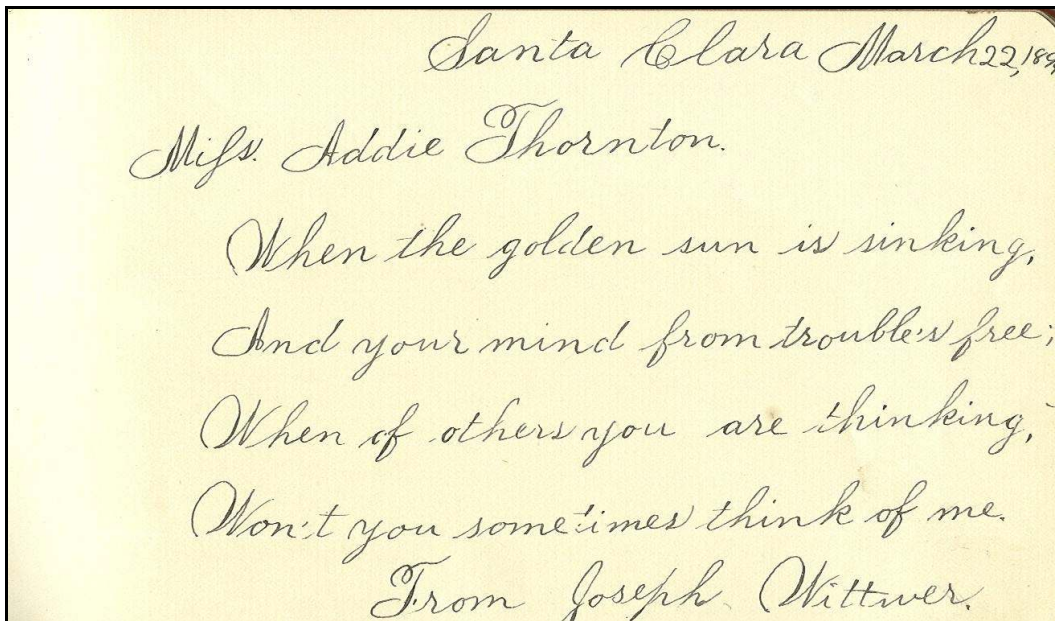 Santa Clara March 22, 189
Mifs. Addie Thornton.
When the golden sun is sinking,
And your mind from trouble's free;
When of others you are thinking,
Won't you sometimes think of me.
From Joseph Wittwer.